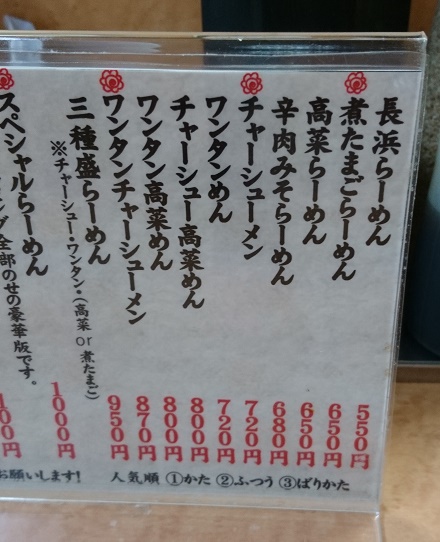 長浜らーめん
煮たまごらーめん
高菜らーめん
辛肉みそらーめん
チャーシューメン
ワンタンめん
チャーシュー高菜めん
ワンタン高菜めん
ワンタンチャーシューメン
三種盛らーめん
※チャーシュー・ワンタン・(高菜 or 煮たまご)
スペシャルらーめん
全部のせの豪華版です。
550円
650円
650円
680円
720円
720円
800円
800円
870円
950円
1000円
00円
お願いします! 人気順 ①かた ②ふつう ③ばりかた